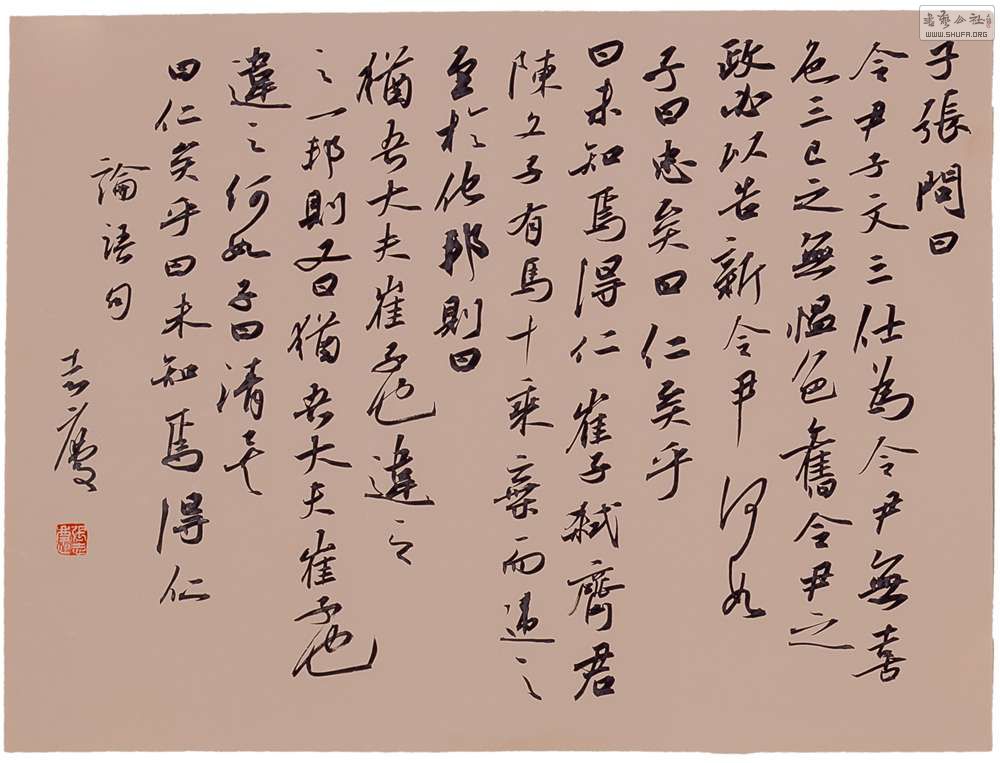 子張問曰
令尹子文三仕為令尹無喜
色三已之無慍色舊令尹之
政必以告新令尹何如
子曰忠矣曰仁矣乎
曰未知焉得仁崔子弒齊君
陳文子有馬十乘棄而違之
至於他邦則曰
猶吾大夫崔子也違之
之一邦則又曰猶吾大夫崔子也
違之何如子曰清矣
曰仁矣乎曰未知焉得仁
論語句
志慶
書藝公社
WWW.SHUFA.ORG